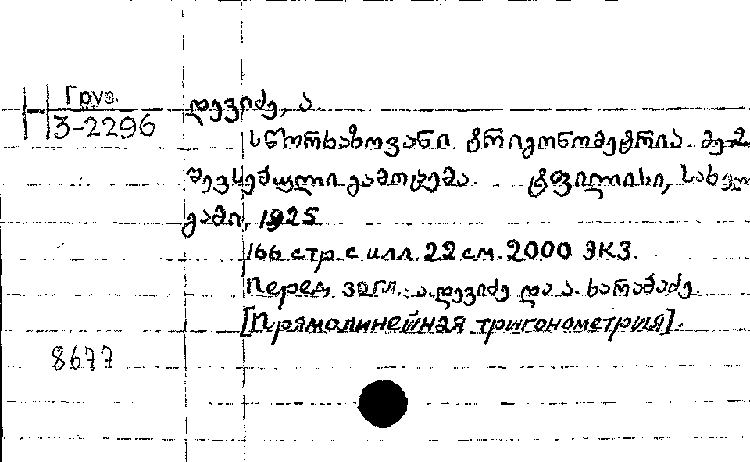 Груз.
3-2296
დევიძე, ა
სწორხაზოვანი ტრიგონომეტრია. მე-2
შევსებული გამოცემა. ტფილისი, სახელ
გამი, 1925
166 стр. с илл. 22 см. 2000 экз.
Перед загл. ა. დევიძე და ა. ხარაბაძე
[Прямолинейная тригонометрия].
8677